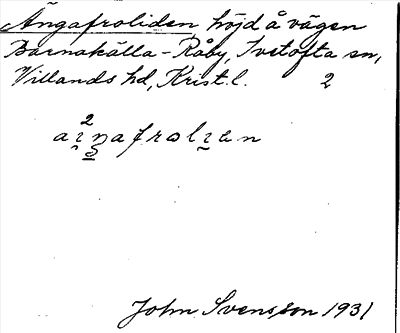 Ängafroliden, höjd å vägen
Barnakälla - Råby, Ivetofta sn,
Villands hd, Krist. l. 2
2
John Svensson 1931